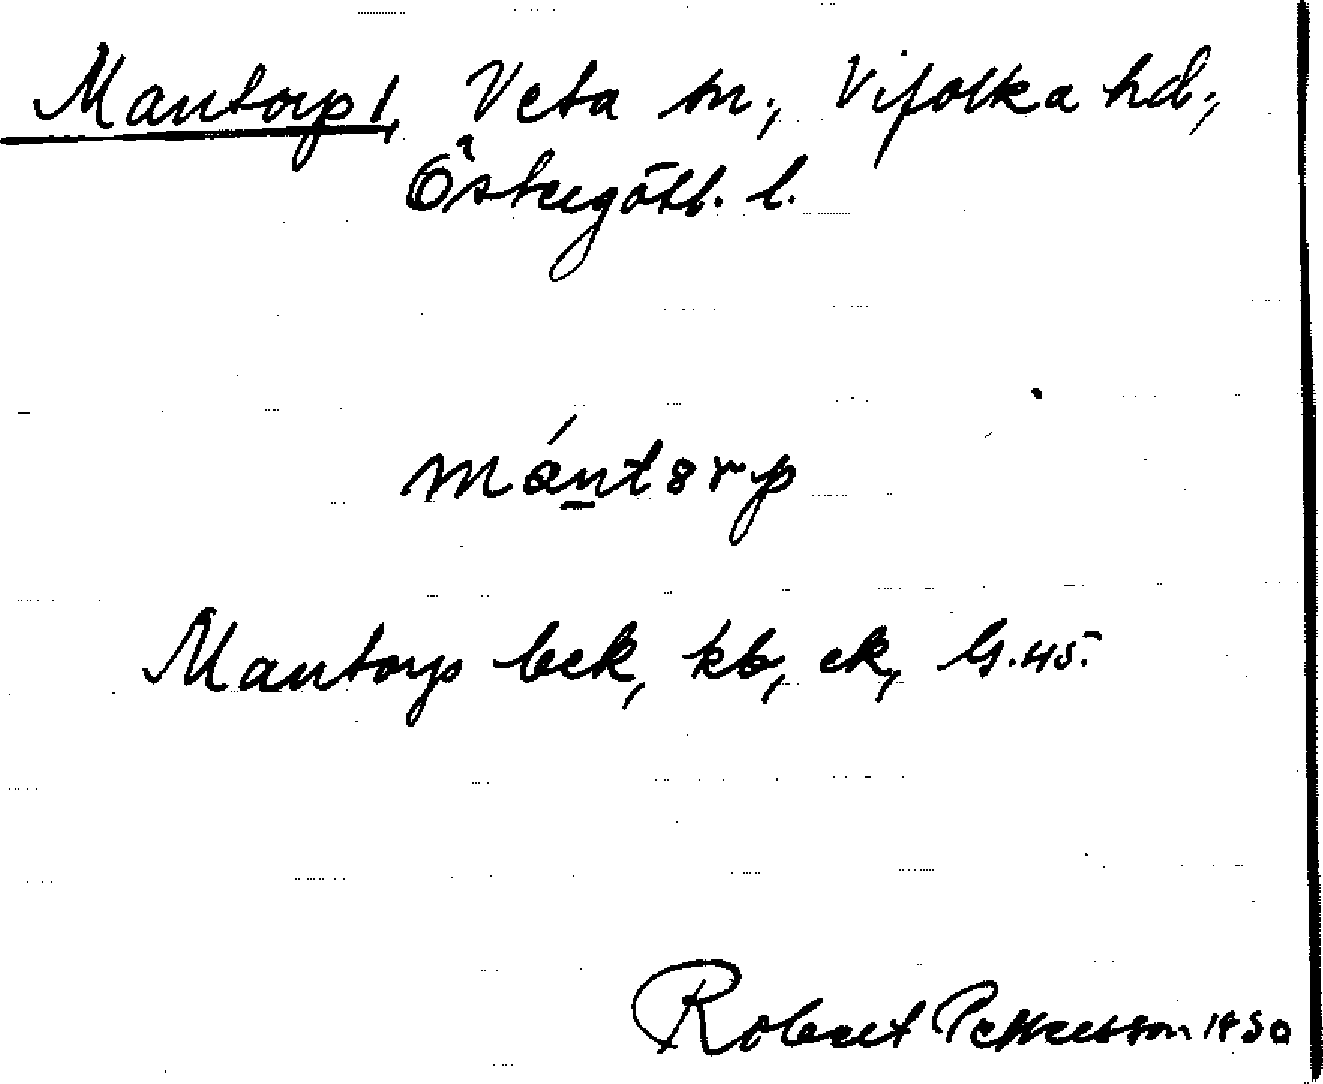 Mantorp 1, Veta sn., Vifolka hd.,
Östergötl. l.
mántorp
Mantorp bek, kb, ek, G.45.
Robert Pettersson 1950